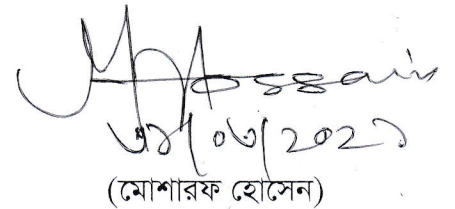 MHossain
৩১/০৩/২০২১
(মোশারফ হোসেন)